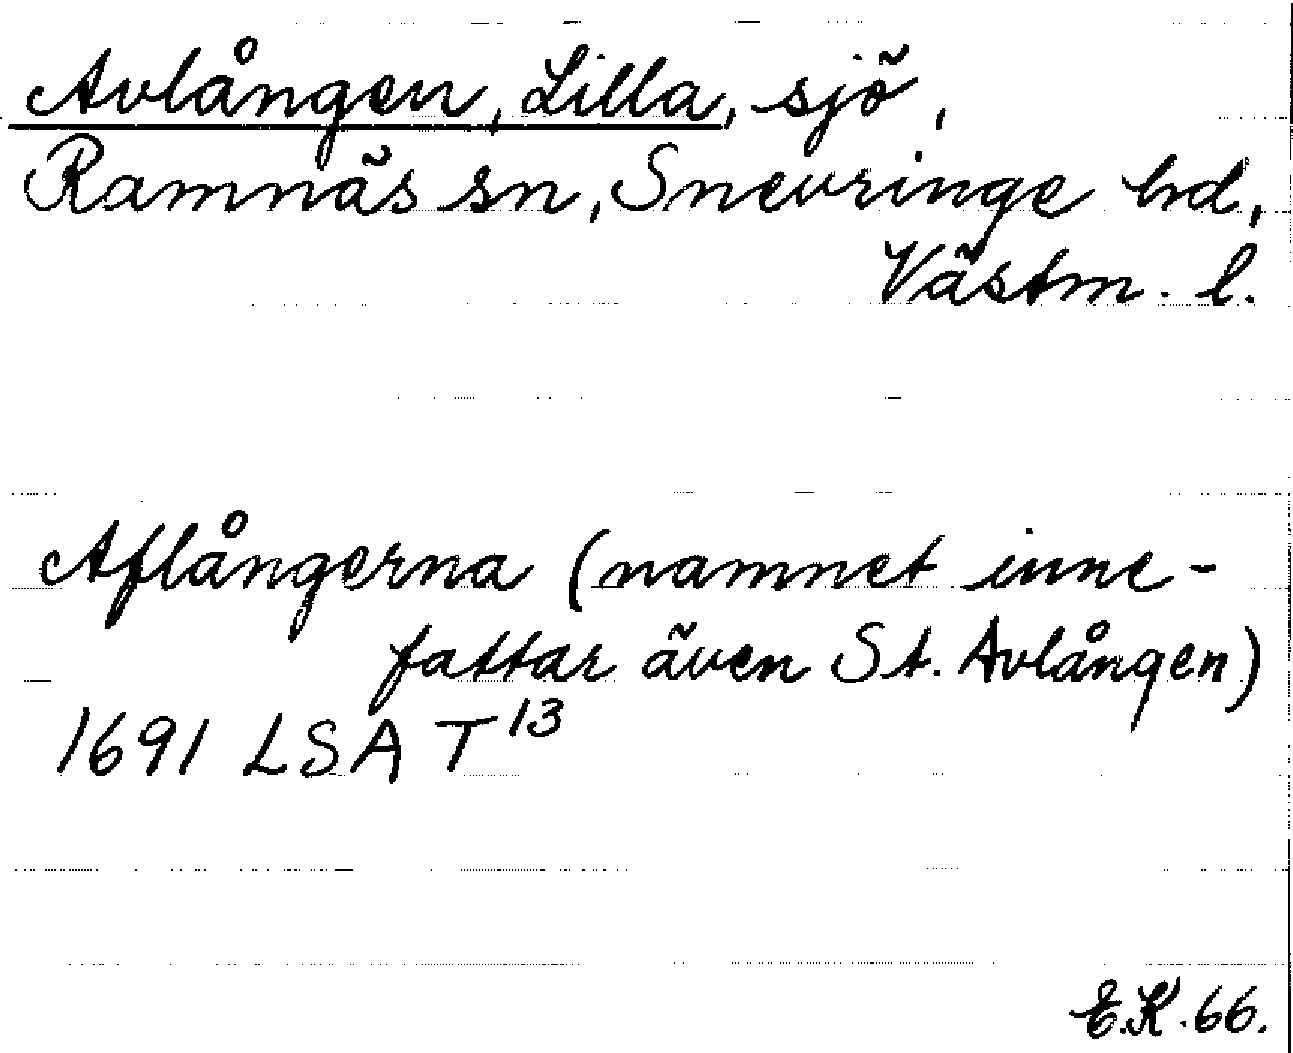 Avlången, Lilla, sjö,
Ramnäs sn, Snevringe hd,
Västm. l.
Aflångerna (namnet inne-
fattar även St. Avlången)
1691 LSA T¹³
E.K. 66.